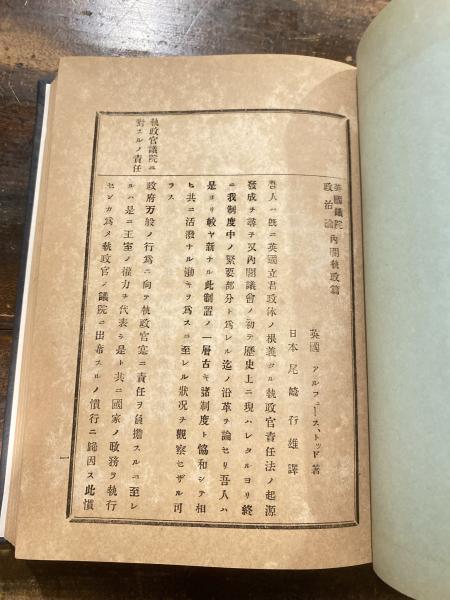 英國議院
政治論 内閣執政篇
英國 アルフュース、トッド 著
日本 尾崎行雄 譯
吾人ハ既ニ英國立君政体ノ根義タル執政官責任法ノ起源
發成ヲ尋子又内閣議會ノ初テ歷史上ニ現ハレタルヨリ終
ニ我制度中ノ緊要部分ト爲レル迄ノ沿革ヲ論セリ吾人ハ
是ヨリ較ヤ新ナル此制置ノ一層古キ諸制度ト協和シテ相
ヒ共ニ活潑ナル働キヲ爲スニ至レル狀況ヲ觀察セザル可
ラス
執政官議院ニ
對スルノ責任
政府万般ノ行爲ニ向テ執政官寔ニ責任ヲ負擔スルニ至レ
ルハ是ニ王室ノ權力ヲ代表シ是ト共ニ國家ノ政務ヲ執行
センガ爲メ執政官ノ議院ニ出席スルノ慣行ニ歸因ス此慣
一